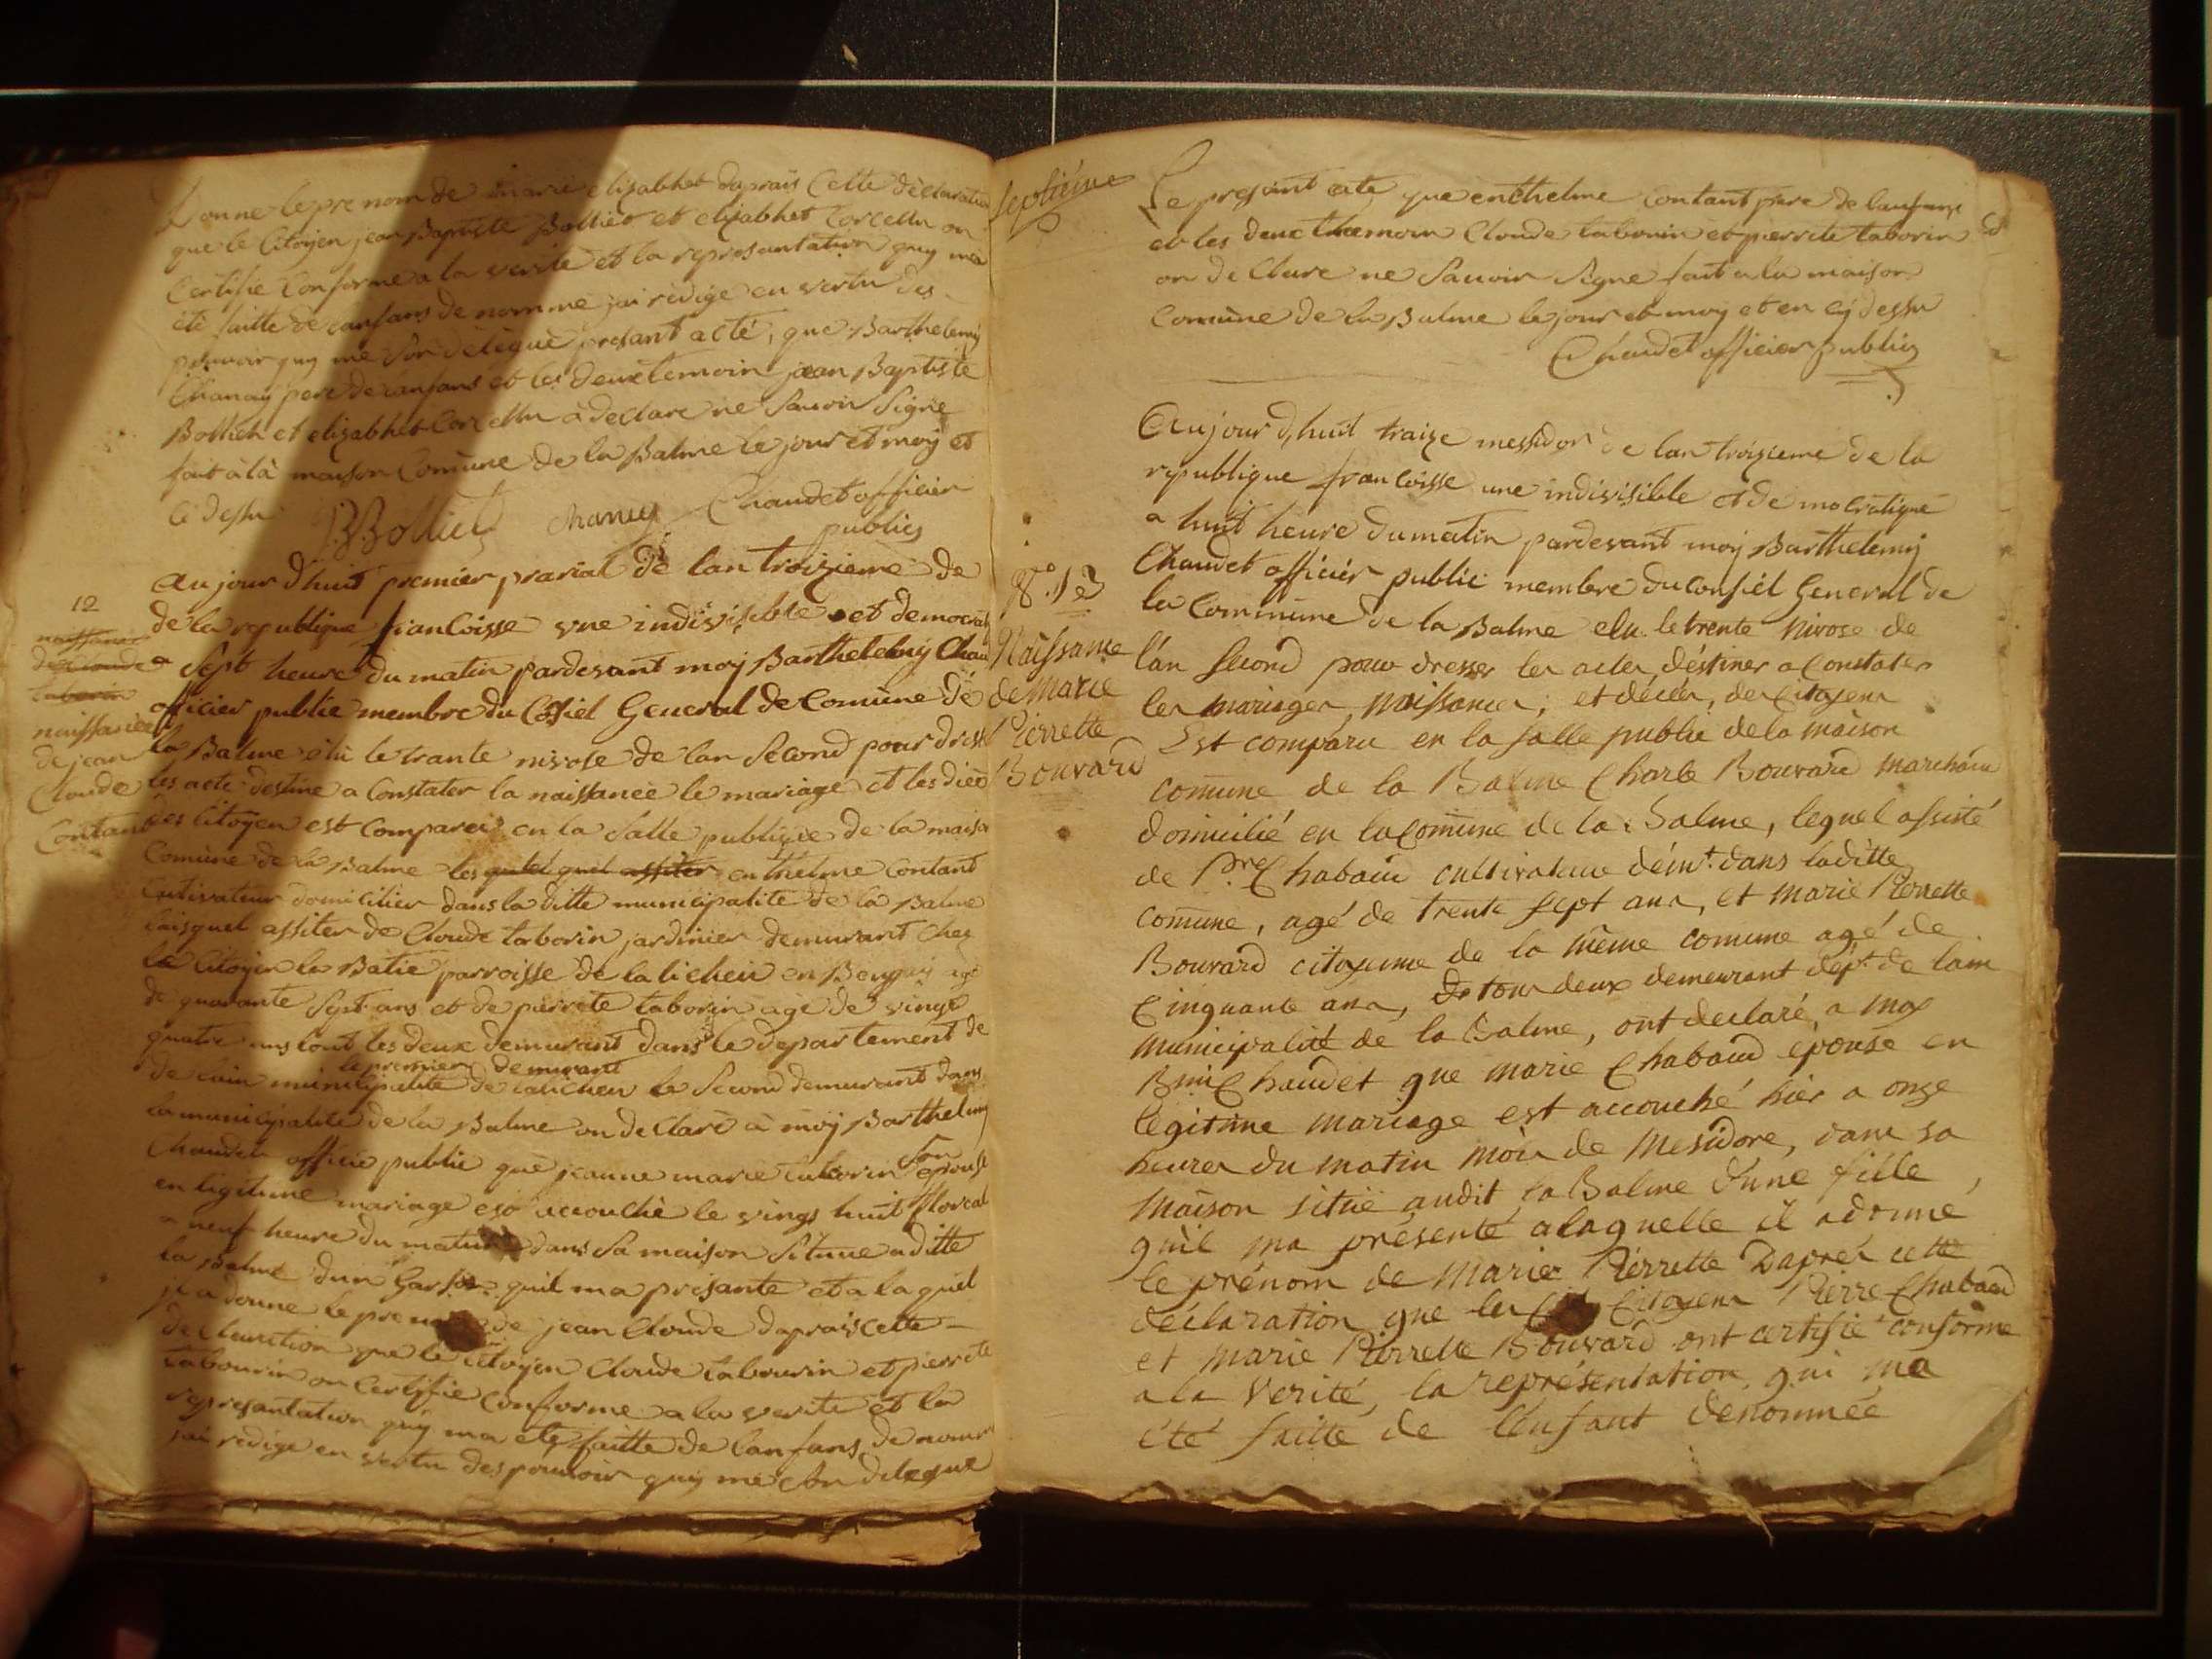 Donne le pre nom de marie elizabhet daprais Cette déclaration
que le Citoyen jean Baptiste Bolliet et elizabhet Corcellu on
Certifie Conforme a la verite et la represantation quy ma
été faitte de lanfans de nommé jai rédige en vertu des
pouvoir quy me son délégué presant acté, que Barthelemy
Chanay pere de lanfans et les deux temoin jean Baptiste
Bolliet et elizabhet Corcellu a declare ne Savoir Signe
fait à là maison Comune de la Balme le jour et moy et
ci dessu
JBBolliet chaney Chaudet officier
publicq
12
naissance
de Claude
taborin
naissancee
de jean
Claude
Contant
Aujourdhuit premier prarial de lan troizieme de
de la republique francoisse vne indivisible et democrati
a Sept heure du matin pardevant moy Barthelemy Chau
officier public membre du Cosiel General de Comune de
la Balme élu le trante nivose de lan Second pour dresse
les acte destine a Constater la naissancee le mariage et les dices
des Citoyen est Comparei en la Salle publique de la maison
Comune de la Balme les quel quel assiter enthelme Contant
Cultivateur domicilier dans la ditte municipalite de la Balme
laisquel assiter de Cloude taborin jardinier demurant Chez
le Citoyen la Batie parroisse de la licheu en Beugay agé
de quarante Sept ans et de pierrete taborin age de vingt
quatre ans tout les deux demurant dans le departement de
le premier demurant
de lain municipalite de lalicheu le Second demurant dans
la municipalite de la Balme on de Claré à moy Barthelemy
Chaudet officie public que jeanne marie taborin Son epouse
en ligitime mariage est accouché le vings huit floreal
a neuf heure du matin dans Sa maison Situee a ditte
la Balme dun Garson quil ma presante et a la quel
jl a donne le pre nom de jean Cloude daprais cette
de Claration que le Citoyen Cloude tabourin et pierrete
tabourin on Certifie Conforme a la verite et la
represantation quy ma ete faitte de lanfans de nomm
jai redige en vertu des pouvoir quy me son delegue
septiéme
Le presant acte que enthelme Contant pere de lanfans
et les deux themoin Cloude taborin et pierrete taborin
on de Clare ne Sauvoir Signe fait a la maison
Comùne de la Balme le jour et moy et en cy dessu
Chaudet officier publicq
8.e
Naissance
de Marie
Pierrette
Bouvard
Aujourd,huit traize messidor de lan troizieme de la
republique francoisse une indivisible et de mocratique
a huit heure du matin pardevant moy Barthelemy
Chaudet officier public membre du Consiél General de
la Commune de la Balme elu le trente Nivose de
l'an second pour dresser les actes déstiner a Constater
les mariages, Naissances, et décès, des Citoyens
Est comparu en la salle public de la maison
comune de la Balme Charle Bouvard marchand
domicilié en la comune de la Balme, lequel assisté
de Pre Chabaud cultivateur démt. dans laditte
comune, agé de trente sept ans, et Marie Pierrette
Bouvard citoyenne de la même comune agé de
Cinquante ans, tous deux demeurant dépt. de lain
municipalité de la Balme, ont declaré, a moy
Bmi Chaudet que marie Chabaud epouse en
légitime mariage est accouché hier a onze
heures du matin mois de Mesidore, dans sa
maison située audit la Balme d'une fille,
qu'il ma présenté a laquelle il a donné
le prénom de Marie Pierrette Daprés cette
déclaration que les Citoyens Pierre Chabaud
et Marie Pierrette Bouvard ont certifié conforme
a la verité, la représentation qui ma
été faitte de l'enfant dénommée